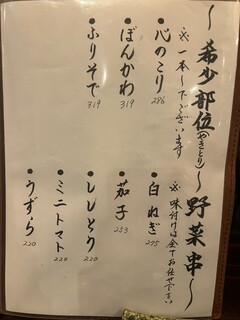 ～希少部位(やきとり)～
※一本～でございます
●心のこり 286
●ぼんかわ 319
●ふりそで 319
～野菜串～
※味付けは全てお任せ下さい
●白ねぎ 275
●茄子 253
●ししとう 220
●ミニトマト 220
●うずら 220